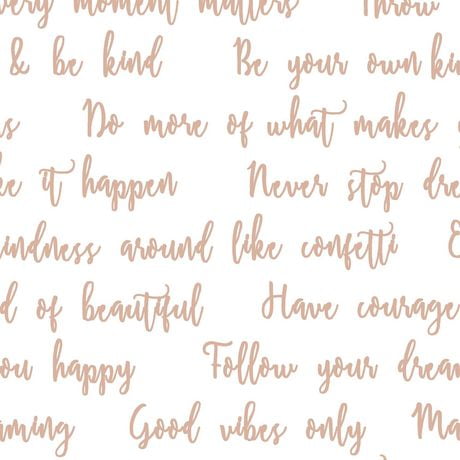 very moment matters Throw
& be kind Be your own kin
s Do more of what makes y
ke it happen Never stop dre
indness around like confetti E
d of beautiful Have courage
ou happy Follow your dream
aming Good vibes only Ma